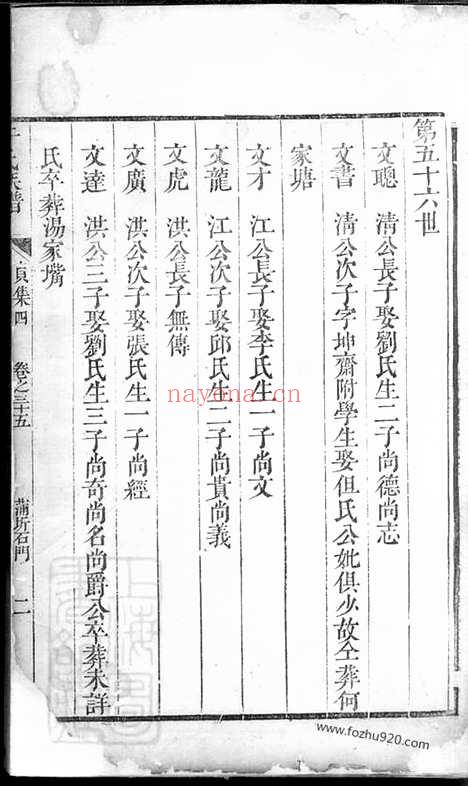 第五十六世
文聰 清公長子娶劉氏生二子尚德尚志
文書 清公次子字坤齋附學生娶但氏公妣俱少故仝葬何
家塘
文才 江公長子娶李氏生一子尚文
文龍 江公次子娶邱氏生二子尚貴尚義
文虎 洪公長子無傳
文廣 洪公次子娶張氏生一子尚經
文達 洪公三子娶劉氏生三子尚奇尚名尚爵公卒葬未詳
氏卒葬湯家嘴
氏族譜 貞集四 卷之三十五 蒲圻石門 二
nayona.cn
www.fozhu920.com